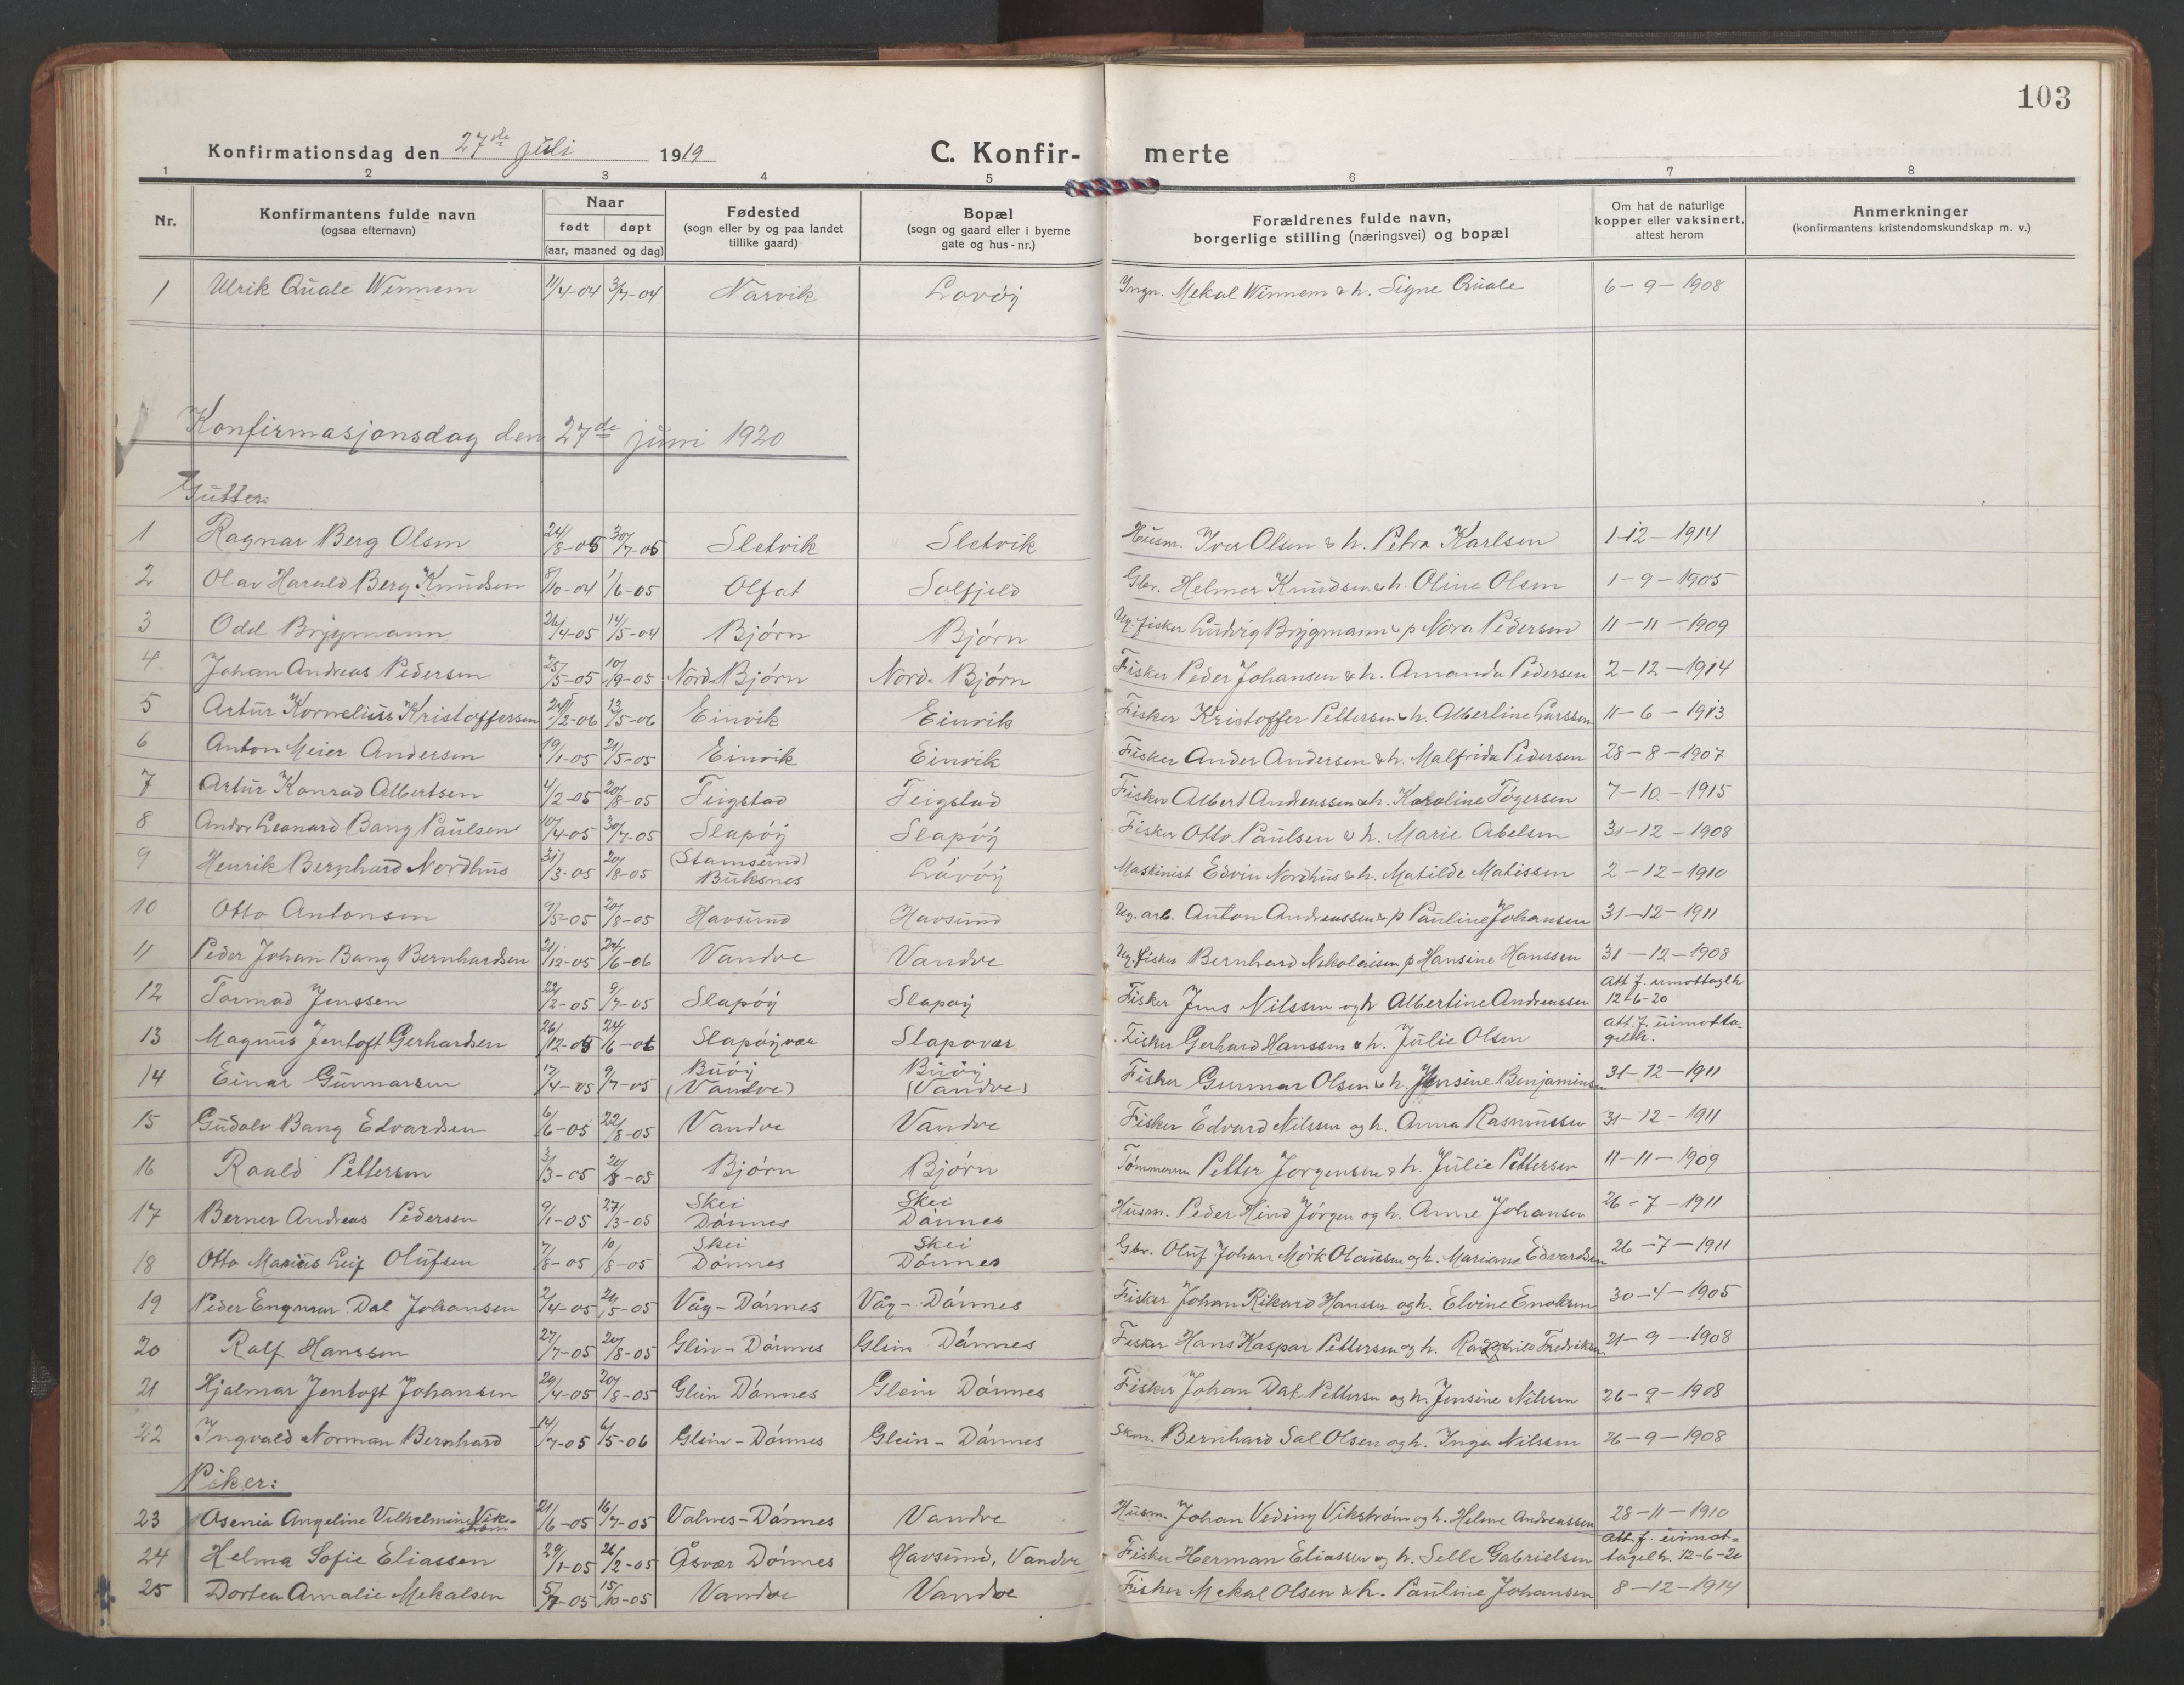 103
Konfirmationsdag den 27de juli 1919 C. Konfir- merte
1 2 3 4 5 6 7 8
Nr. Konfirmantens fulde navn (ogsaa efternavn) Naar født døpt (aar, maaned og dag) Fødested (sogn eller by og paa landet tillike gaard) Bopæl (sogn og gaard eller i byerne gate og hus-nr.) Forældrenes fulde navn, borgerlige stilling (næringsvei) og bopæl Om hat de naturlige kopper eller vaksinert, attest herom Anmerkninger (konfirmantens kristendomskundskap m. v.)
1 Ulrik Quale Winnem 11/4-04 3/7-04 Narvik Lovöy Ingn. Mekal Winnem & h. Signe Quale 6-9-1908
Konfirmasjonsdag den 27de juni 1920
Gutter:
1 Ragnar Berg Olsen 24/8-05 30/7-05 Sletvik Sletvik Husm. Iver Olsen & h. Petra Karlsen 1-12-1914
2 Olav Harald Berg Knudsen 8/10-04 1/6-05 Olfat Solfjeld Gbr. Helmer Knudsen & h. Oline Olsen 1-9-1905
3 Odd Brygmann 26/4-05 14/5-04 Björn Björn Ug. fisker Ludvig Brygmann & p Nora Pedersen 11-11-1909
4 Johan Andreas Pedersen 25/5-05 10/9-05 Nord-Björn Nord-Björn Fisker Peder Johansen & h. Amanda Pedersen 2-12-1914
5 Artur Kornelius Kristoffersen /2-06 13/5-06 Einvik Einvik Fisker Kristoffer Pettersen & h. Albertine Larssen 11-6-1913
6 Anton Meier Andersen 19/1-05 21/5-05 Einvik Einvik Fisker Ander Andersen & h. Malfrida Pedersen 28-8-1907
7 Artur Konrad Albertsen 4/2-05 20/8-05 Teigstad Teigstad Fisker Albert Andreassen & h. Karoline Tögersen 7-10-1915
8 Andor Leonard Bang Paulsen 10/4-05 30/7-05 Slapöy Slapöy Fisker Otto Paulsen & h. Marie Abelsen 31-12-1908
9 Henrik Bernhard Nordhus 31/3-05 20/8-05 (Stamsund) Buksnes Lövöy Maskinist Edvin Nordhus & h. Matilde Matissen 2-12-1910
10 Otto Antonsen 9/5-05 20/8-05 Havsund Havsund Ug. arb. Anton Andreassen & p Pauline Johansen 31-12-1911
11 Peder Johan Bang Bernhardsen 21/12-05 24/6-06 Vandve Vandve Ug. fisker Bernhard Nekolaisen p Hansine Hanssen 31-12-1908
12 Tormod Jenssen 22/2-05 9/7-05 Slapöy Slapöy Fisker Jens Nilssen og h Albertine Andreassen att. f. umottaglh 12-6-20
13 Magnus Jentoft Gerhardsen 26/12-05 24/6-06 Slapöyvær Slapövær Fisker Gerhard Hanssen & h. Julie Olsen att. f. uimotta- gelh.
14 Einar Gunnarsen 17/4-05 9/7-05 Buöy (Vandve) Buöy (Vandve) Fisker Gunnar Olsen & h. Jensine Benjaminsen 31-12-1911
15 Gudolv Bang Edvardsen 6/6-05 22/8-05 Vandve Vandve Fisker Edvard Nilssen og h. Anna Rasmussen 31-12-1911
16 Roald Pettersen 3/3-05 20/8-05 Björn Björn Tömmerm Petter Jorgensen & h. Julie Pettersen 11-11-1909
17 Berner Andreas Pedersen 9/1-05 27/3-05 Skei Dönnes Skei Dönnes Husm. Peder Hind Jörgen og h. Anne Johansen 26-7-1911
18 Otto Marius Leif Olufsen 7/8-05 10/8-05 Skei Dönnes Skei Dönnes Gbr. Oluf Johan Mörk Olaussen og h. Mariane Edvardsen 26-7-1911
19 Peder Engnaur Dal Johansen 2/4-05 21/5-05 Våg-Dönnes Våg-Dönnes Fisker Johan Rikard Hanssen og h. Elvine Enoksen 30-4-1905
20 Rolf Hanssen 27/7-05 20/8-05 Glein-Dönnes Glein Dönnes Fisker Hans Kaspar Pettersen og h. Ragnhild Fredriksen 21-9-1908
21 Hjalmar Jentoft Johansen 29/4-05 20/8-05 Glein Dönnes Glein Dönnes Fisker Johan Dal Pettersen og h. Jensine Nilssen 26-9-1908
22 Ingvald Norman Bernhard 14/7-05 6/5-06 Glein-Dönnes Glein-Dönnes Skm. Bernhard Sal Olsen og h. Inga Nilssen 26-9-1908
Piker:
23 Asenia Angeline Vilhelmine Vik- ström 21/6-05 16/7-05 Valnes-Dönnes Vandve Husm. Johan Veding Vikström og h. Helene Andreassen 28-11-1910
24 Helma Sofie Eliassen 29/1-05 26/2-05 Åsvær Dönnes Havsund, Vandve Fisker Herman Eliassen og h. Selle Gabrielsen att. f. uimot- tagelh. 12-6-20
25 Dortea Amalie Mekalsen 5/7-05 15/10-05 Vandve Vandve Fisker Mekal Olsen & h. Pauline Johansen 8-12-1914